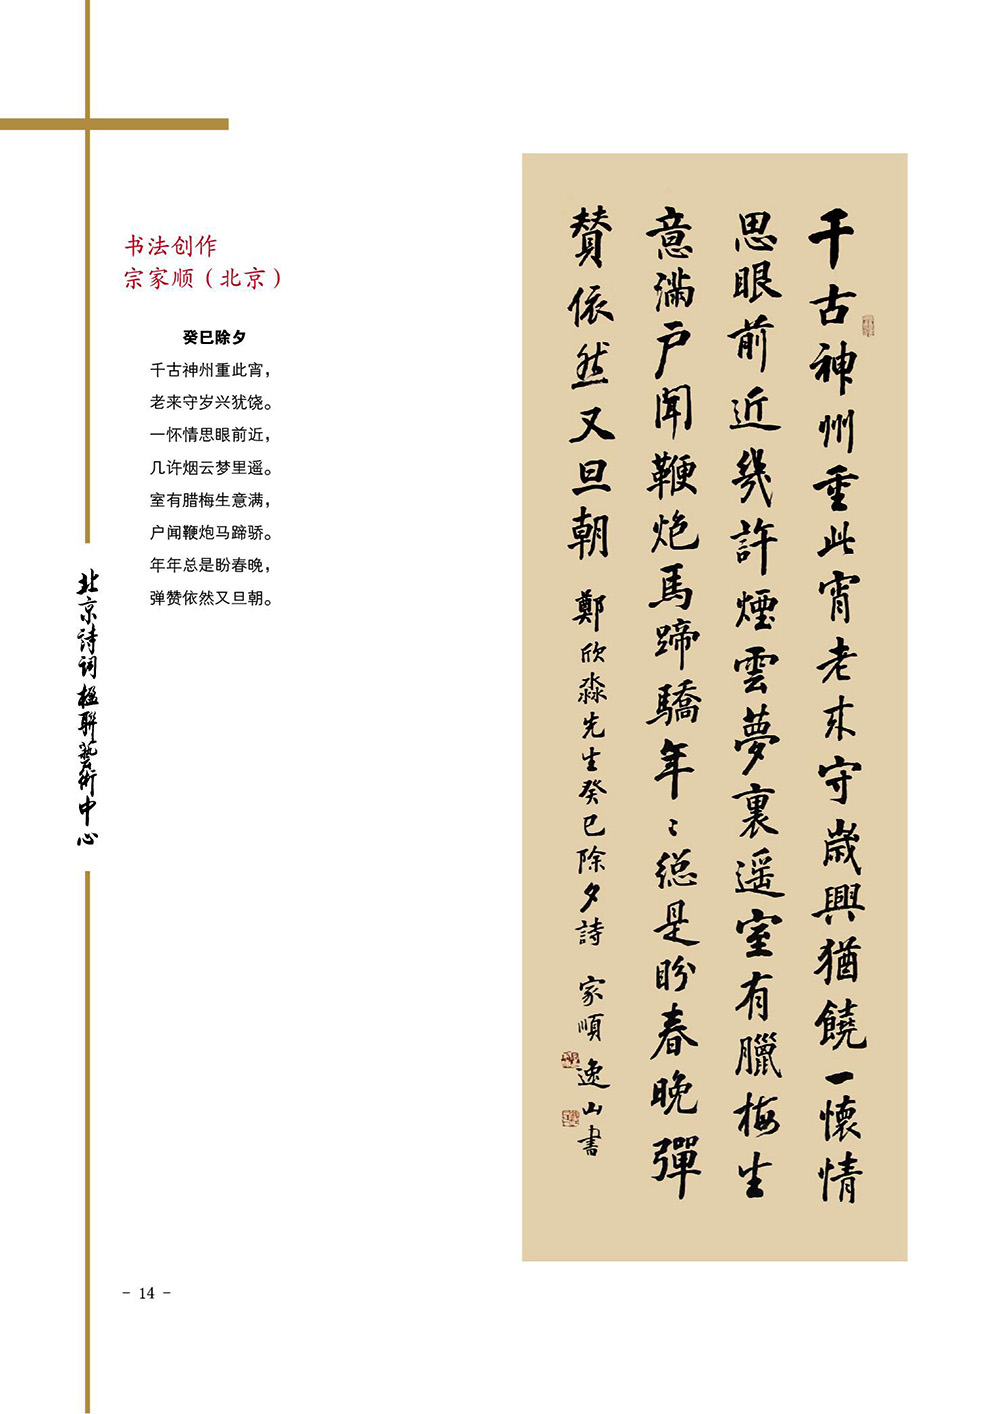 书法创作
宗家顺（北京）
癸巳除夕
千古神州重此宵，
老来守岁兴犹饶。
一怀情思眼前近，
几许烟云梦里遥。
室有腊梅生意满，
户闻鞭炮马蹄骄。
年年总是盼春晚，
弹赞依然又旦朝。
千古神州重此宵老来守歲興猶饒一懷情
思眼前近幾許煙雲夢裏遥室有臘梅生
意滿户聞鞭炮馬蹄驕年〻總是盼春晚彈
贊依然又旦朝 鄭欣淼先生癸巳除夕詩 家順
逸山書
北京詩词楹聯藝術中心
- 14 -